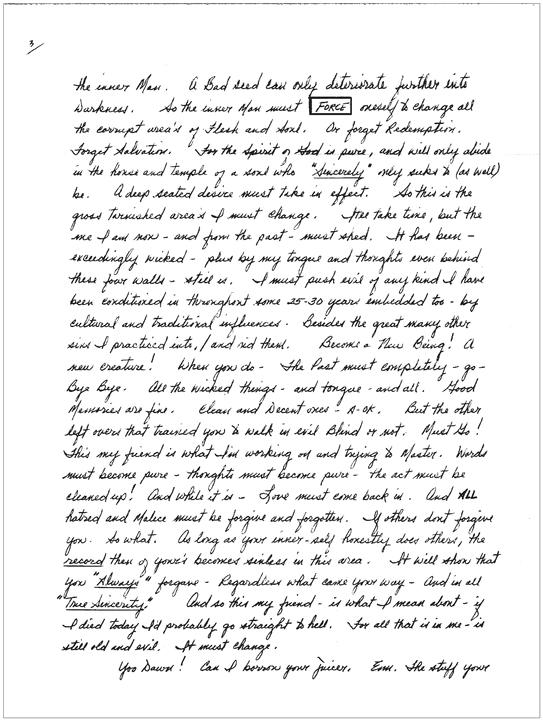 3/
the inner Man. A Bad seed can only deteriorate further into
Darkness. So the inner Man must FORCE oneself to change all
the corrupt area's of Flesh and Soul. Or forget Redemption.
Forget Salvation. For the Spirit of God is pure, and will only abide
in the house and temple of a sons who "Sincerely" only seeks to (as well)
be. A deep seated desire must take in effect. So this is the
gross tarnished area's I must change. Itll take time, but the
me I am now - and from the past - must shed. It has been -
exceedingly wicked - plus by my tongue and thoughts even behind
these four walls - still is. I must push evil of any kind I have
been conditioned in throughout some 25-30 years imbedded too - by
cultural and traditional influences. Besides the great many other
sins I practiced into, / and rid them. Become a New Being! A
new creature! When you do - The Past must completely - go -
Bye Bye. All the wicked things - and tongue - and all. Good
Memories are fine. Clean and Decent ones - A-OK. But the other
left overs that trained you to walk in evil Blind or not. Must Go!
This my friend is what I'm working on and trying to Master. Words
must become pure - thoughts must become pure - the act must be
cleaned up! And while it is - Love must come back in. And ALL
hatred and Malice must be forgive and forgotten. If others dont forgive
you. So what. As long as your inner-self honestly does others, the
record then of your's becomes sinless in this area. It will show that
you "Always" forgave - Regardless what came your way - And in all
"True Sincerity." And so this my friend - is what I mean about - if
I died today I'd probably go straight to hell. For all that is in me - is
still old and evil. It must change.
Yoo Dawn! Can I borrow your juicer. Esm. The stuff your